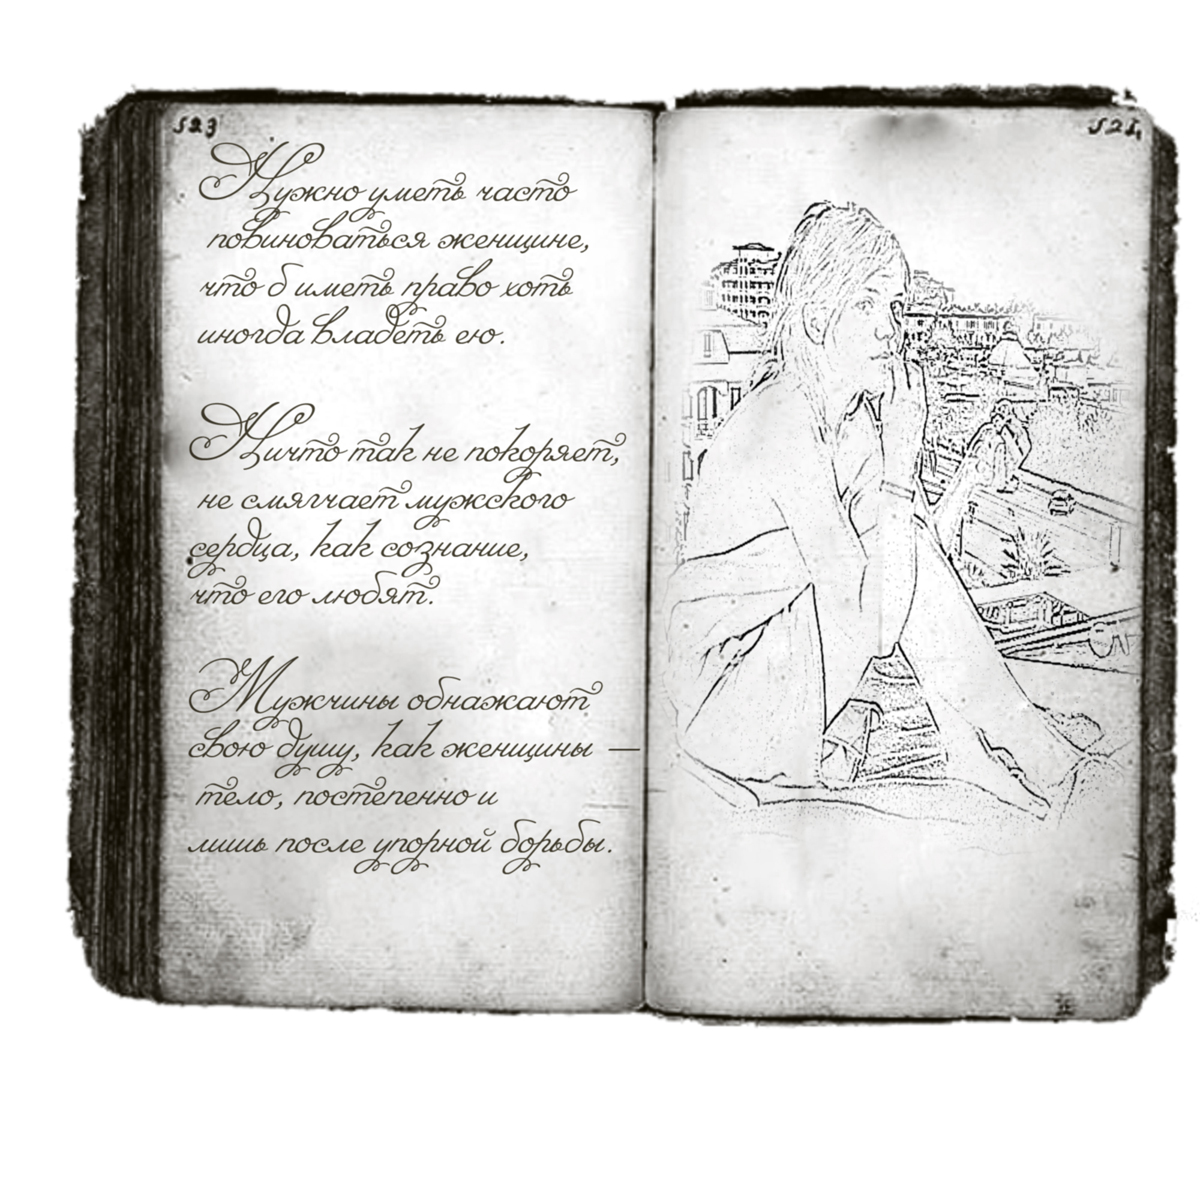 523
524
Нужно уметь часто
повиноваться женщине,
что б иметь право хоть
иногда владеть ею.
Ничто так не покоряет,
не смягчает мужского
сердца, как сознание,
что его любят.
Мужчины обнажают
свою душу, как женщины —
тело, постепенно и
лишь после упорной борьбы.